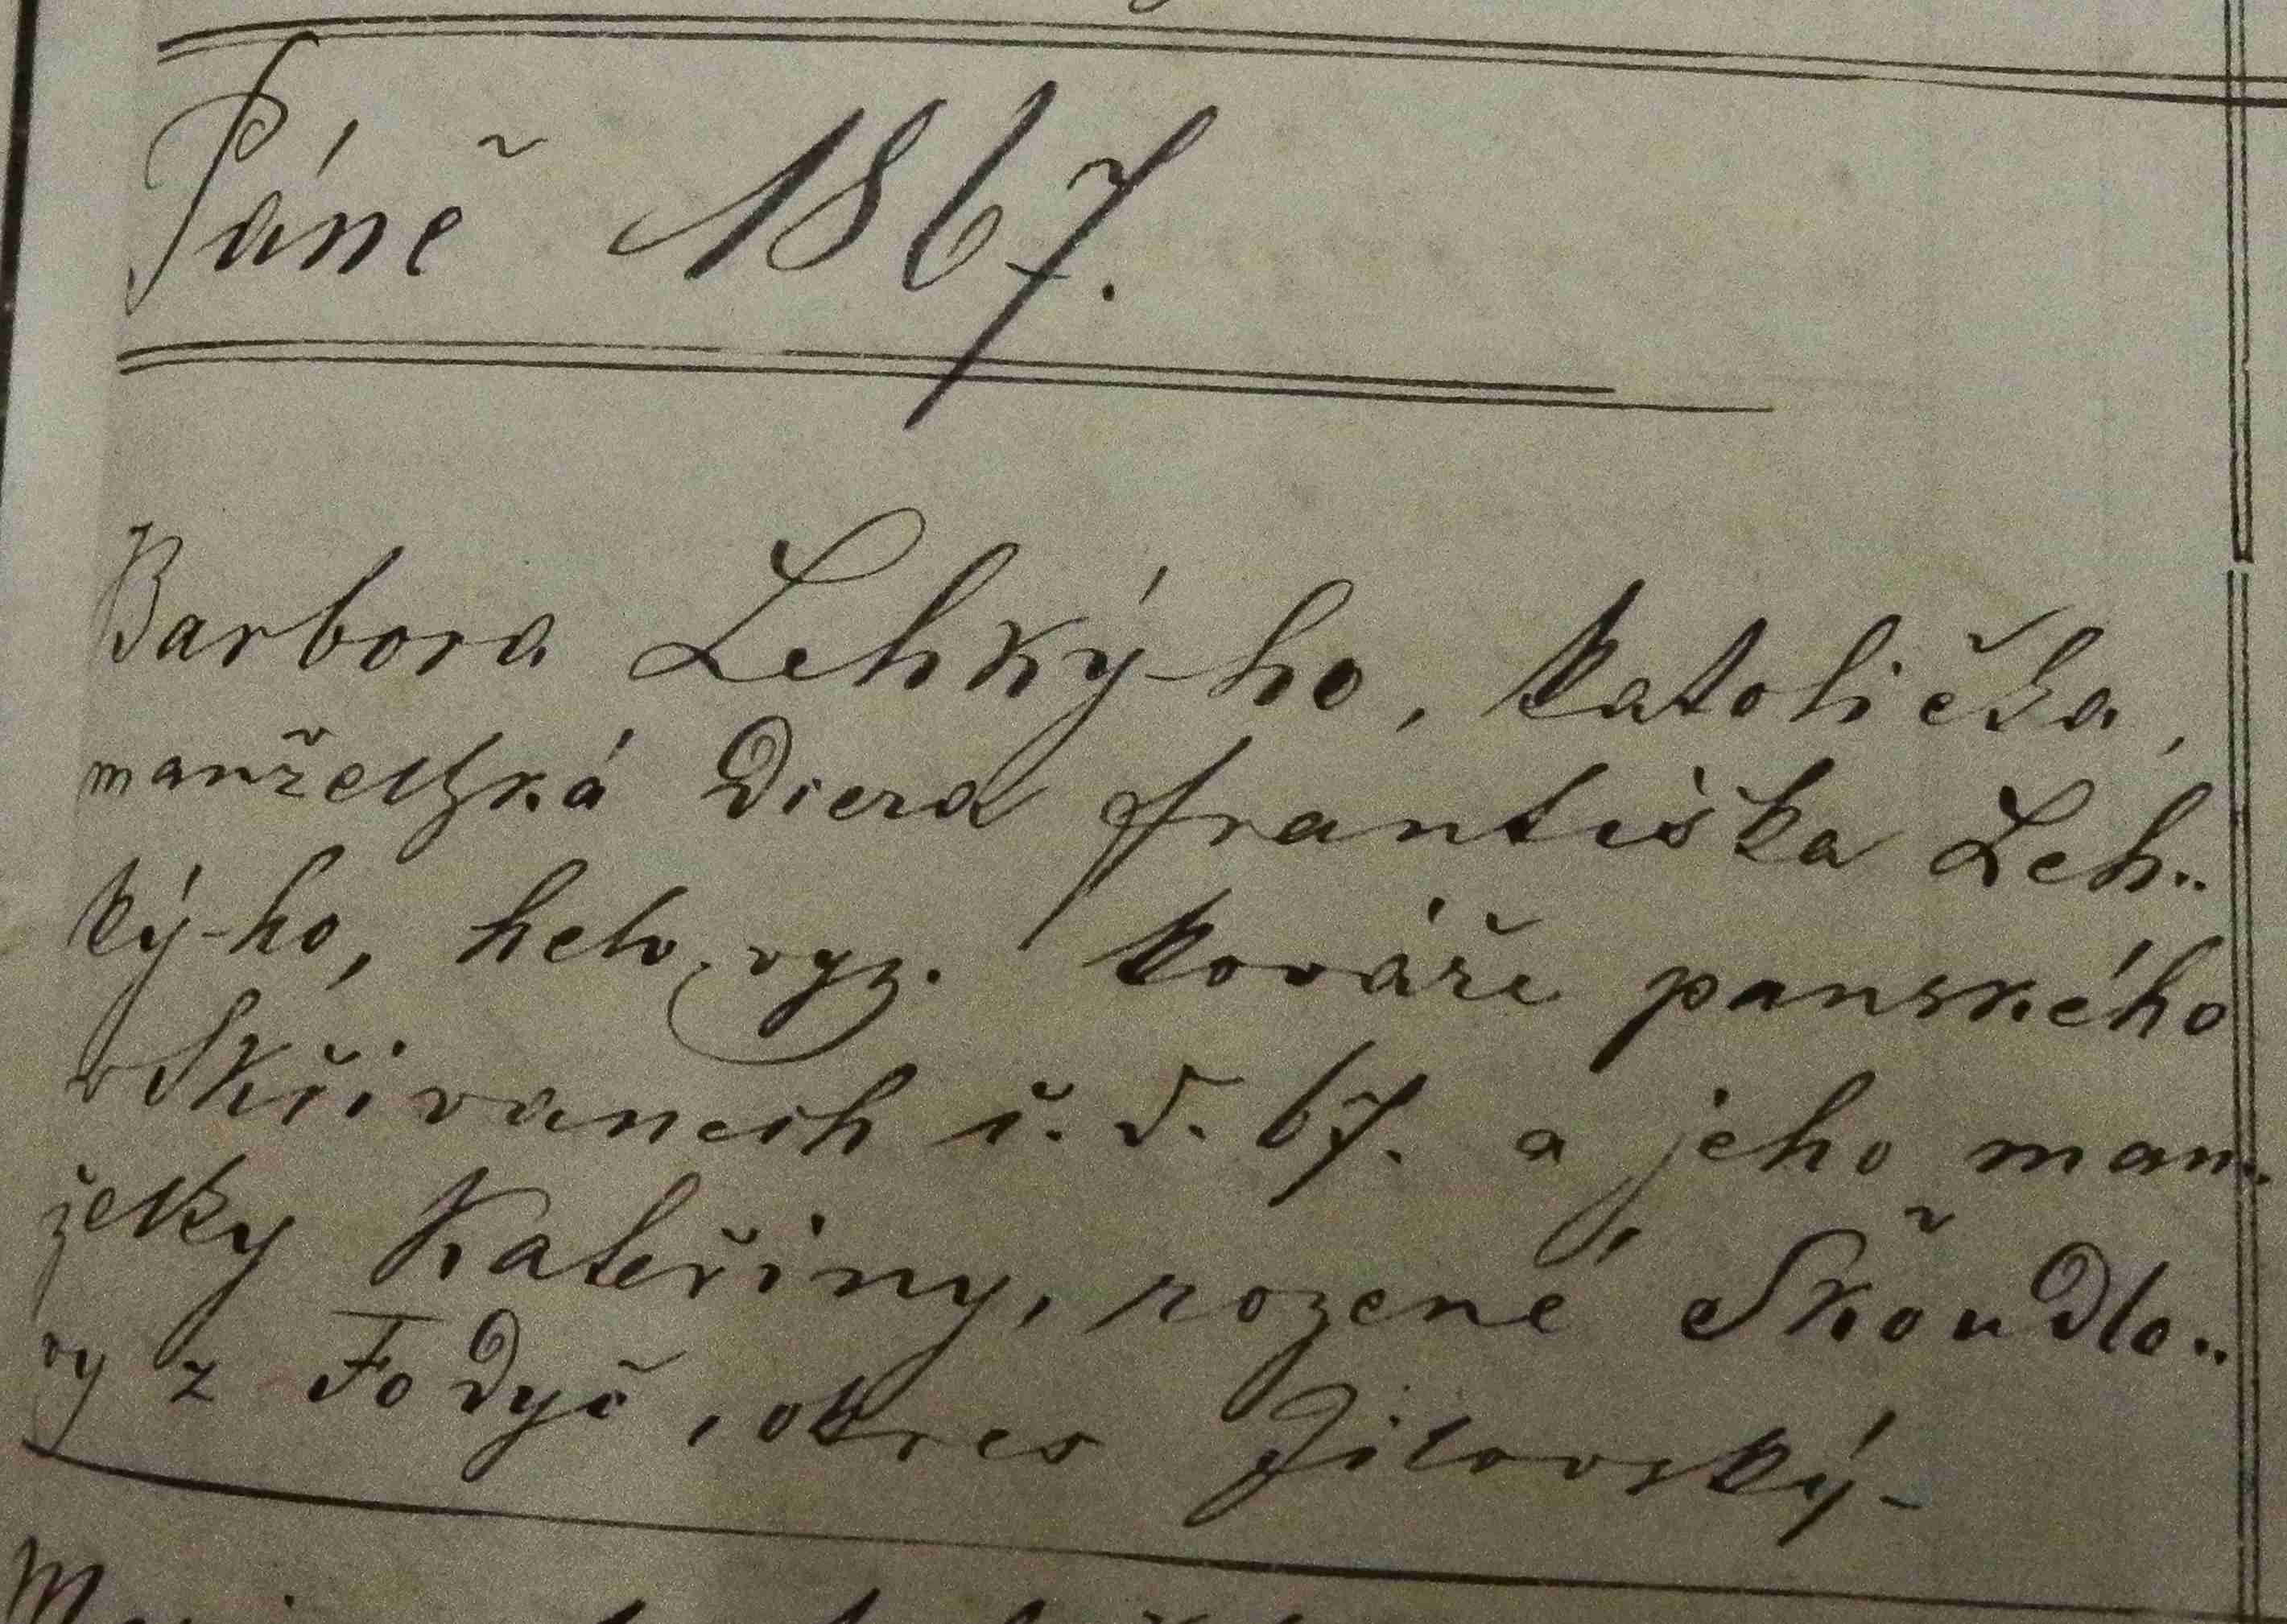 Páně 1867.
Barbora Lehký-ho, katolička,
manželská dcera Františka Leh..
ký-ho, helv. vyz. kováře panského
v Skřivanech č. d. 67. a jeho man..
želky Kateřiny, rozené Skřoudlo..
vy z Fodyč, okres Jílovský-